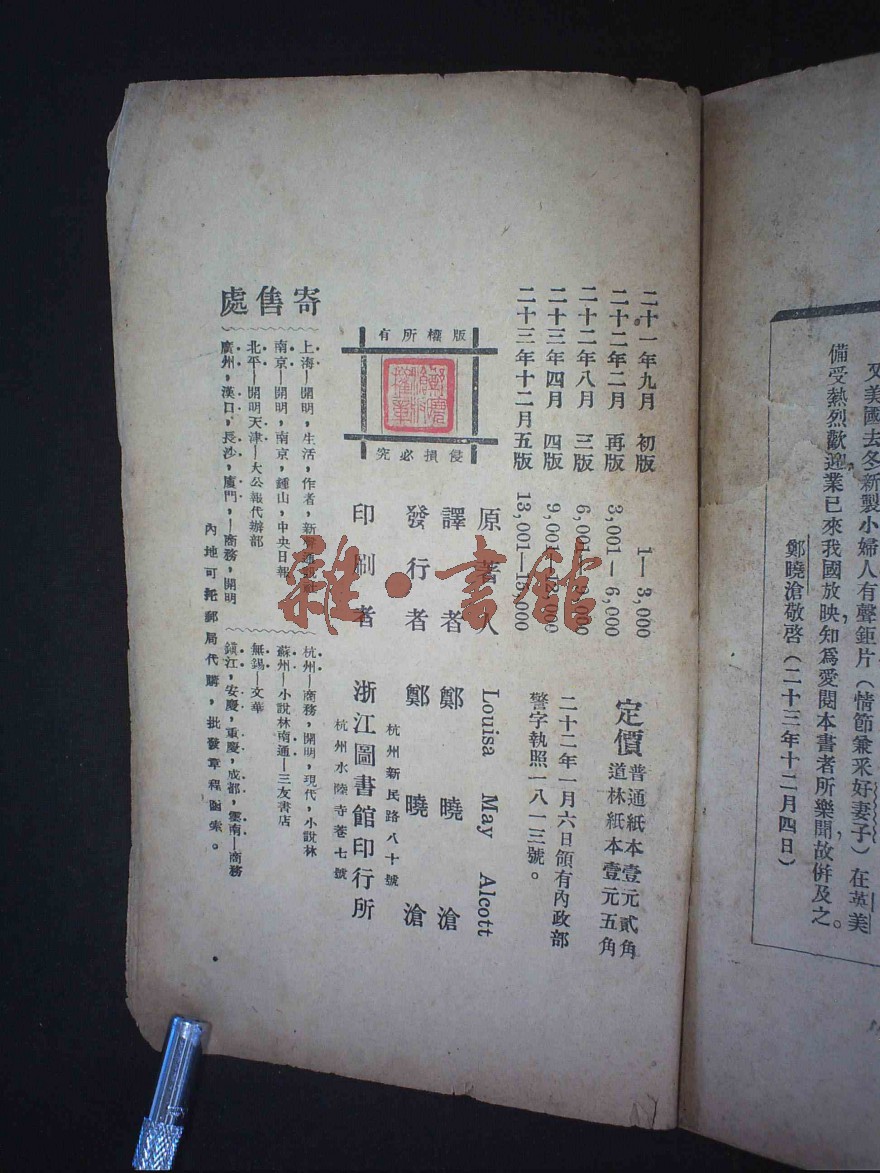 又美國去冬新製小婦人有聲鉅片(情節兼采好妻子)在英美
備受熱烈歡迎業已來我國放映知爲愛閱本書者所樂聞故倂及之。
鄭曉滄敬啓(二十三年十二月四日)
二十一年九月 初版 1—3,000
二十二年二月 再版 3,001—6,000
二十二年八月 三版 6,001—9,000
二十三年四月 四版 9,001—12,000
二十三年十二月五版 13,001—15,000
定價 普通紙本壹元貳角
道林紙本壹元五角
二十二年一月六日領有內政部
警字執照一八一三號。
版權所有
侵損必究
原著人 Louisa May Alcott
譯者 鄭曉滄
發行者 鄭曉滄
杭州新民路八十號
印刷者 浙江圖書館印行所
杭州水陸寺巷七號
寄售處
上海—開明,生活,作者,新
南京—開明,南京,鍾山,中央日報
北平—開明天津—大公報代辦部
廣州,漢口,長沙,廈門,—商務,開明
杭州—商務,開明,現代,小說林
蘇州—小說林南通—三友書店
無錫—文華
鎭江,安慶,重慶,成都,雲南—商務
內地可托郵局代購,批發章程函索。
雜·書館